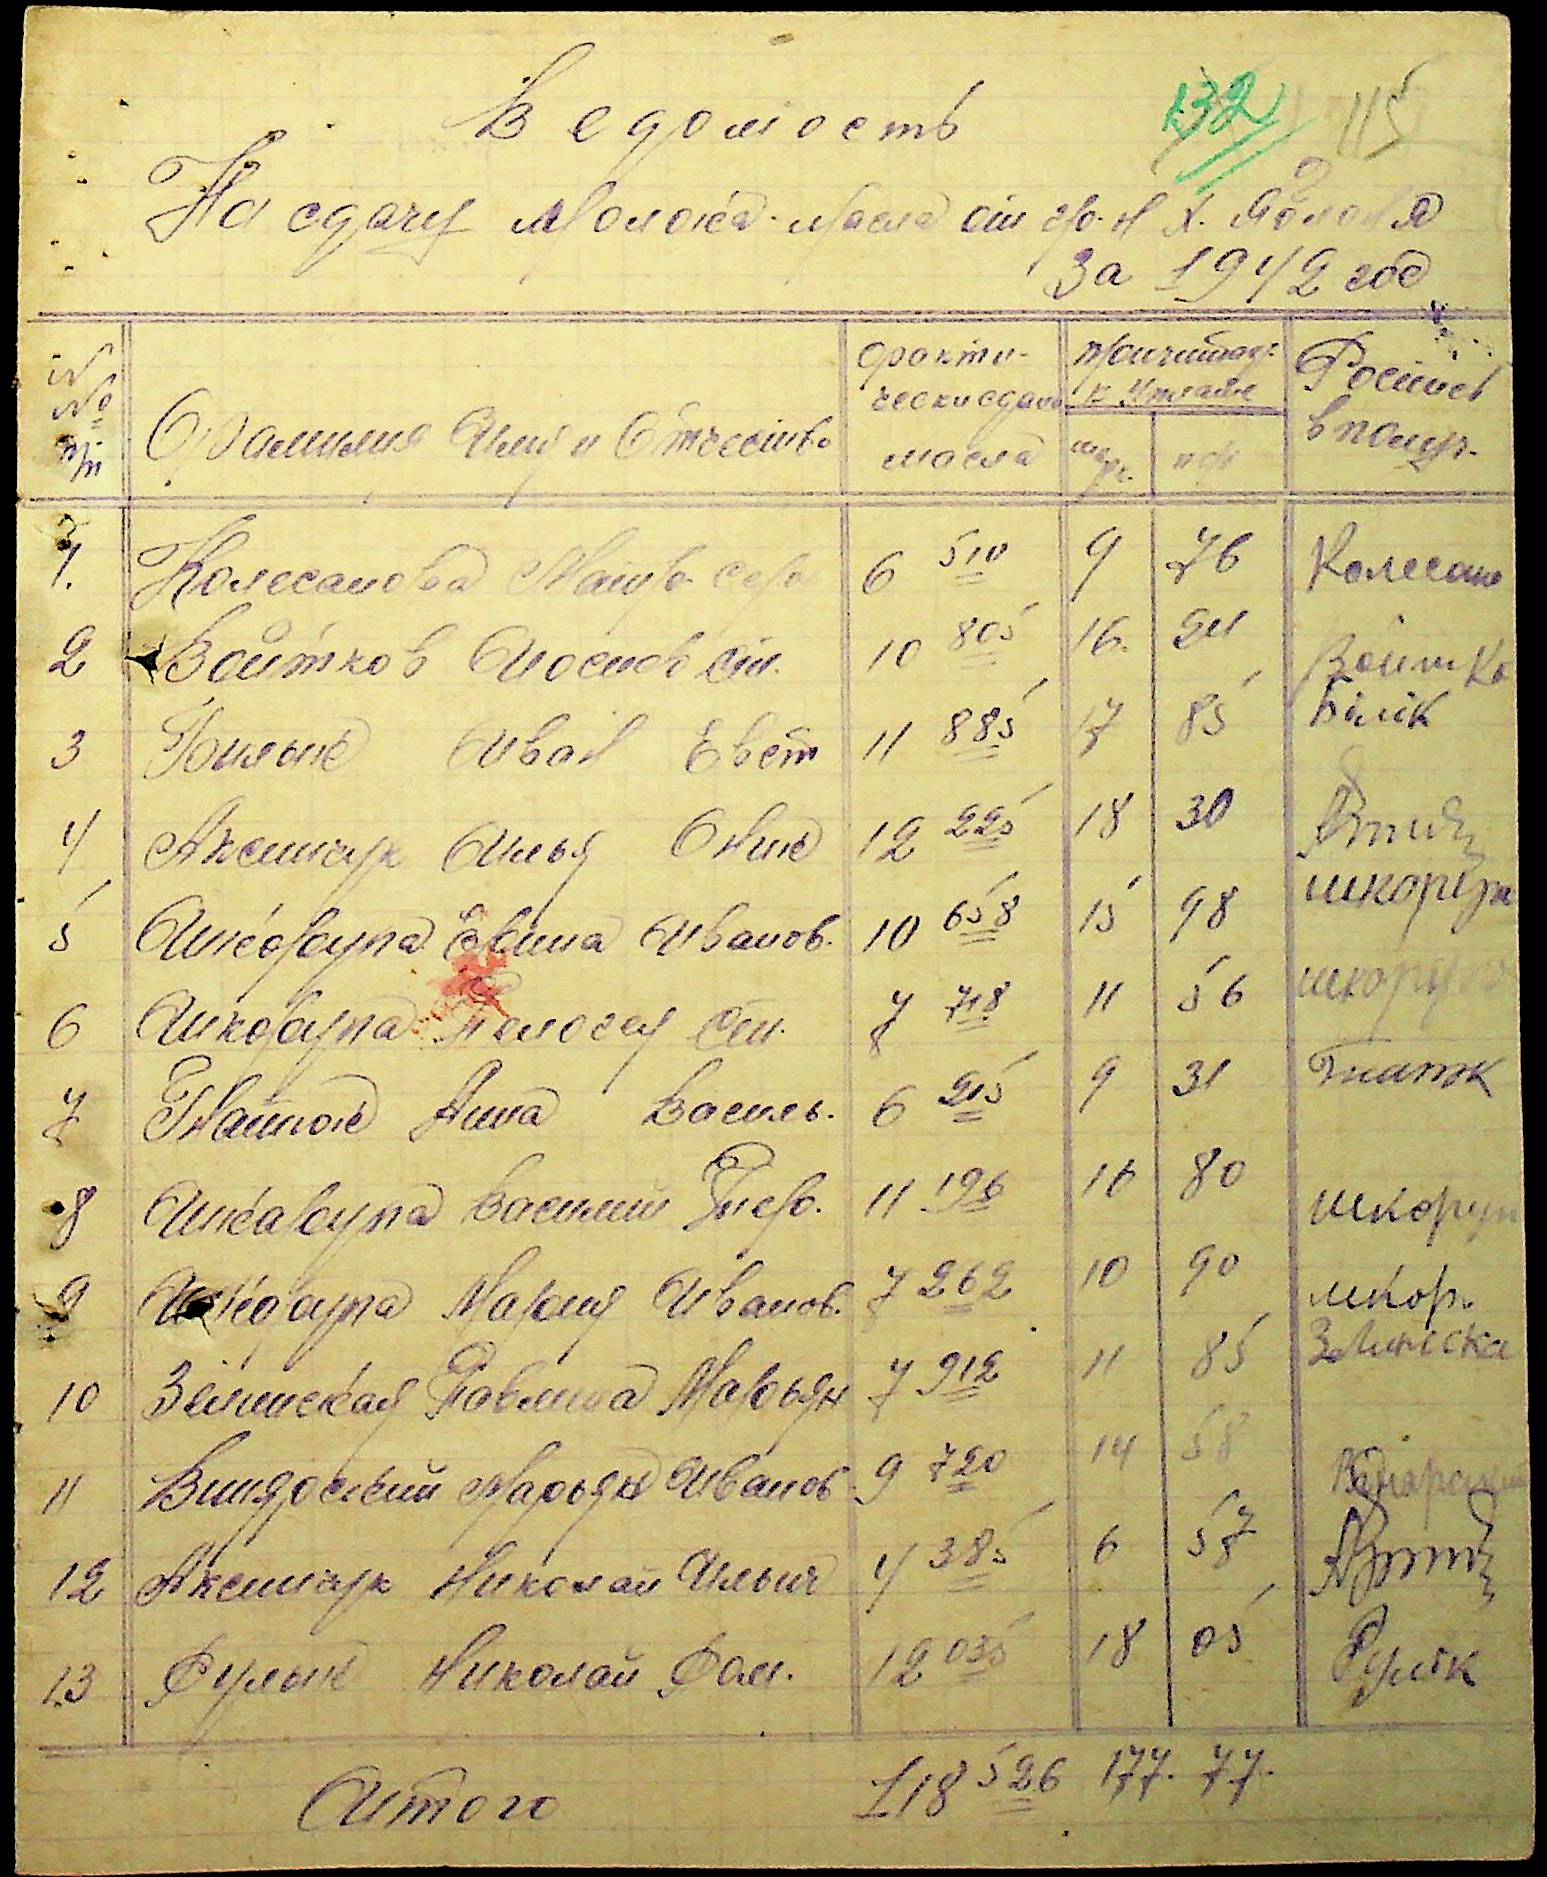 Ведомость
132 115
На сдачу молока-масла от гр-н х. Яблоня
За 1942 год
№№ п/п Фамилия Имя и Отчество фактически сдано масла причитает. к уплате марк. пф Роспись в получ.
1. Колесанова 6 510 9 76
2 Войтков Иосиф Ст. 10 805 16. 21 Войтко
3 Билык Иван Евст 11 885 17 85 Білік
4 Аксинчук Илья Оник 12 225 18 30
5 Шкорупа Ивановн. 10 658 15 98 шкорупа
6 Шкорупа Пелогея Ст. 7 718 11 56 шкорупа
7 Гнатюк Анна Василь. 6 215 9 31 Гнатюк
8 Шкарупа Василий 11 196 16 80 шкоруп
9 Шкорупа Мария Иванов. 7 262 10 90 шкор.
10 Зелинская Павлина Марьян 7 912 11 85 Злинска
11 Марьян Иванов 9 720 14 58
12 Аксинчук Николай Ильич 4 385 6 57
13 Рулык Николай Фом. 12 035 18 05 Рулік
Итого 118 526 177. 77.